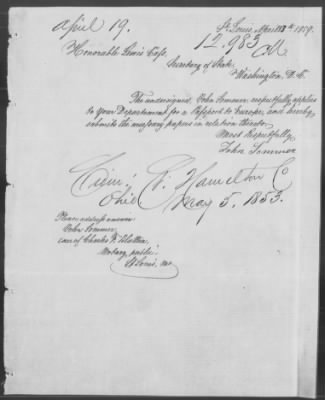 April 19.
St. Louis April 13th 1859.
12.983
Honorable Lewis Cass.
Secretary of State.
Washington, D. C.
The undersigned, John Sommer respectfully applies
to Your Department for a Passport to Europe, and hereby
submits the necessary papers in relation thereto.
Most Respectfully
John Sommer
Hamilton Co
Ohio May 5. 1853.
Please address answer
John Sommer
care of Charles F.
Notary public.
St Louis, Mo